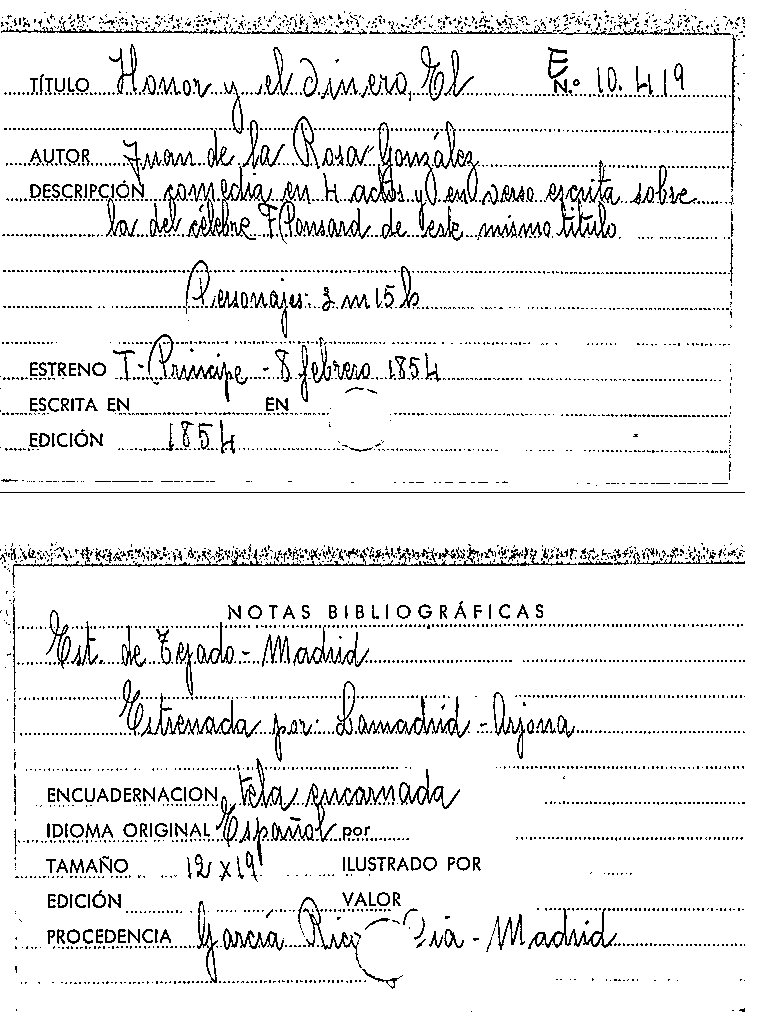 TÍTULO Honor y el dinero, El E N.º 10.419
AUTOR Juan de la Rosa González
DESCRIPCIÓN comedia en 4 actos y en verso escrita sobre
la del célebre F. Ponsard de este mismo título
Personajes: 3 m 15 h
ESTRENO T. Príncipe - 8 febrero 1854
ESCRITA EN EN
EDICIÓN 1854
NOTAS BIBLIOGRÁFICAS
Est. de Tejado - Madrid
Estrenada por: Lamadrid - Arjona
ENCUADERNACION tela encarnada
IDIOMA ORIGINAL Español por
TAMAÑO 12 x 19 ILUSTRADO POR
EDICIÓN VALOR
PROCEDENCIA García Rico - Madrid